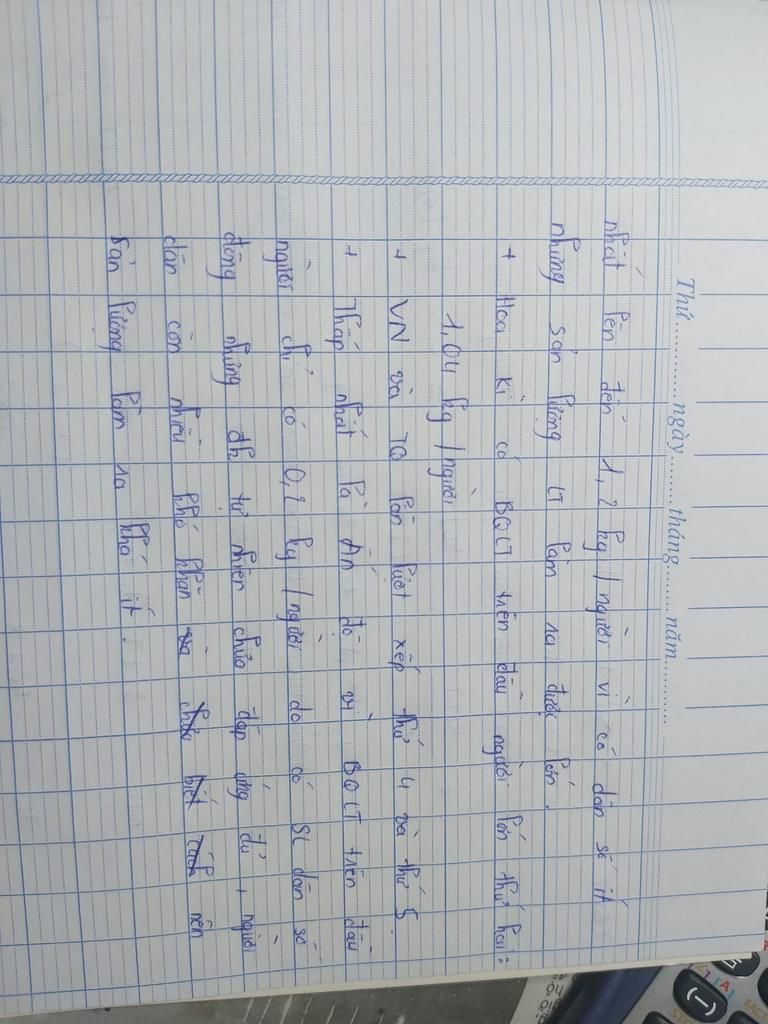 Thứ ............ ngày ......... tháng ......... năm ............
nhất lên đến 1,2 kg / người vì có dân số ít
nhưng sản lượng LT làm ra được lớn.
+ Hoa kì có BQLT trên đầu người lớn thứ hai:
1,04 kg / người
+ VN và TQ lần lượt xếp thứ 4 và thứ 5.
+ Thấp nhất là Ấn độ vì BQLT trên đầu
người chỉ có 0,2 kg / người do có SL dân số
đông nhưng đk tự nhiên chưa đáp ứng đủ, người
dân còn nhiều khó khăn nên
sản lượng làm ra khá ít.
(-)